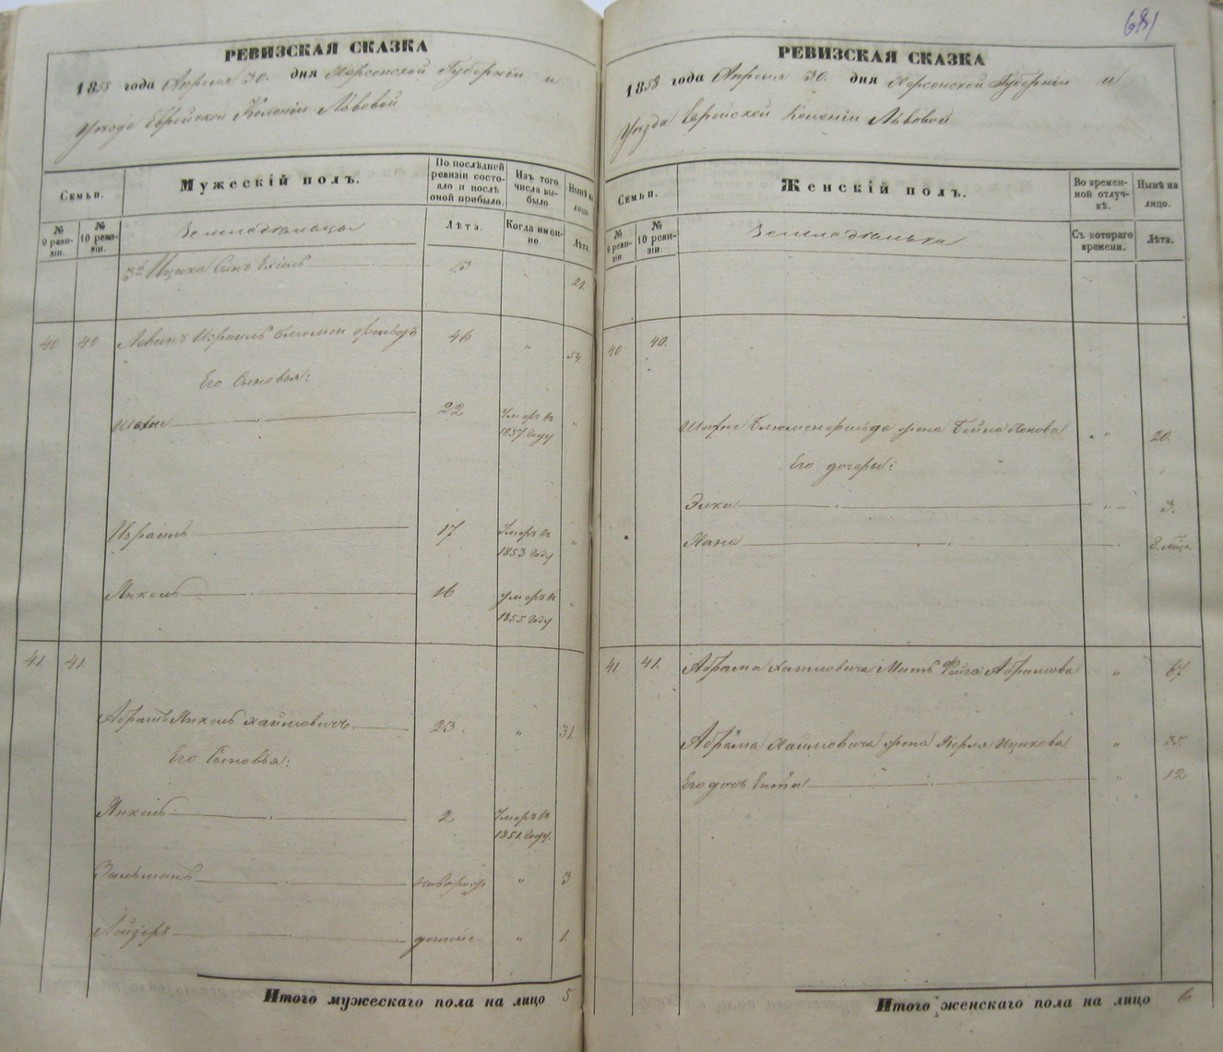 РЕВИЗСКАЯ СКАЗКА
1858 года Апреля 30. дня Херсонской Губерніи и
Уезда Еврейской Колоніи Львовой
Семьи.
Мужескій полъ.
По послѣдней ревизіи состояло и послѣ оной прибыло.
Изъ того числа выбыло
Нынѣ на лицо.
№ 9 ревизіи.
№ 10 ревизіи.
Земледельцы
Лѣта.
Когда именно.
Лѣта.
32 Ицика Сынъ 13 21.
40 40 Левинъ Израиль 46 " 54
Его Сыновья:
Шахне 22 Умеръ въ 1857 году "
Израиль 17 Умеръ въ 1853 году "
Янкель 16 умеръ въ 1855 году "
41. 41.
Абрамъ Янкель Хаимовичъ 23. " 31
Его Сыновья:
Янкель 2 Умеръ въ 1851 году.
Зальманъ новорож " 3
Лейзеръ денные " 1.
Итого мужескаго пола на лицо 5
681
РЕВИЗСКАЯ СКАЗКА
1858 года Апреля 30. дня Херсонской Губерніи и
Уезда Еврейской Колоніи Львовой
Семьи.
Женскій полъ.
Во временной отлучкѣ.
Нынѣ на лицо.
№ 9 ревизіи
№ 10 ревизіи.
Земледельцы
Съ котораго времени.
Лѣта.
40 40.
Шахне Блюменфельда жена Бейла 20.
Его дочери:
Элка 3.
Хана
41 41. Абрама Хаимовича Мать Фейга Абрамова " 67
Абрама Хаимовича жена Перля Ицикова " 35.
Его дочь Ента " 12
Итого женскаго пола на лицо 6